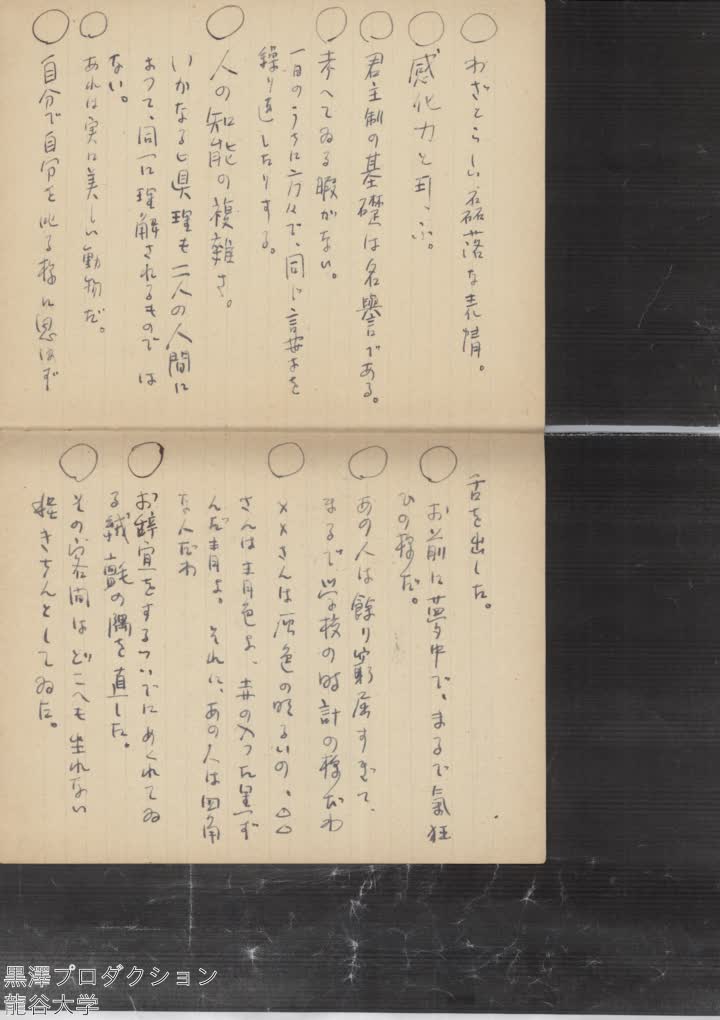 ○わざとらしい磊落な表情。
○感化力と再ぶ。
○君主制の基礎は名譽である。
○考へてゐる暇がない。
一日のうちに方々で、同じ言葉を
繰り返したりする。
○人の知能の複雑さ。
いかなる眞理も二人の人間に
よつて、同一に理解されるものでは
ない。
○あれは実に美しい動物だ。
○自分で自分を叱る様に思はず
舌を出した。
○お前に夢中で、まるで氣狂
ひの様だ。
○あの人は餘り窮屈すぎて、
まるで学校の時計の様だわ
○××さんは灰色の明るいの、△△
さんは青色よ、赤の入つた黒ず
んだ青よ。それに、あの人は四角
な人だわ
○お辞宜をするついでにめくれてゐ
る絨氈の隅を直した。
○その客間はどこへも坐れない
程きちんとしてゐた。
黒澤プロダクション
龍谷大学